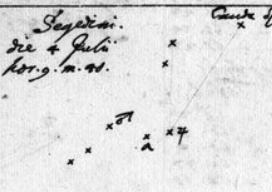 Segedini.
die 4 Julii
hor. 9. m. 45.
Cauda
♂
a
♃